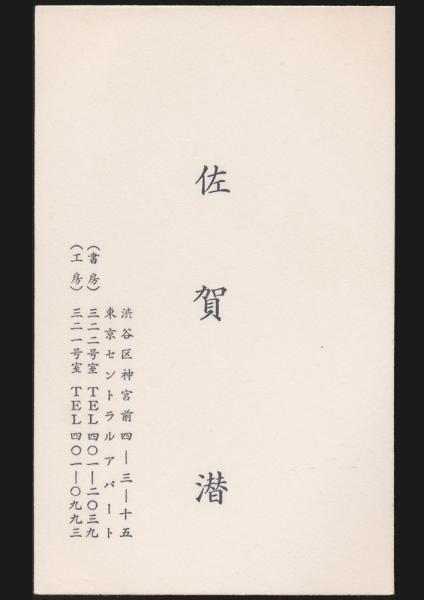 佐賀潜
渋谷区神宮前四―三―十五
東京セントラルアパート
（書房）三二二号室 TEL四〇一―二〇三九
（工房）三二一号室 TEL四〇一―〇九九三